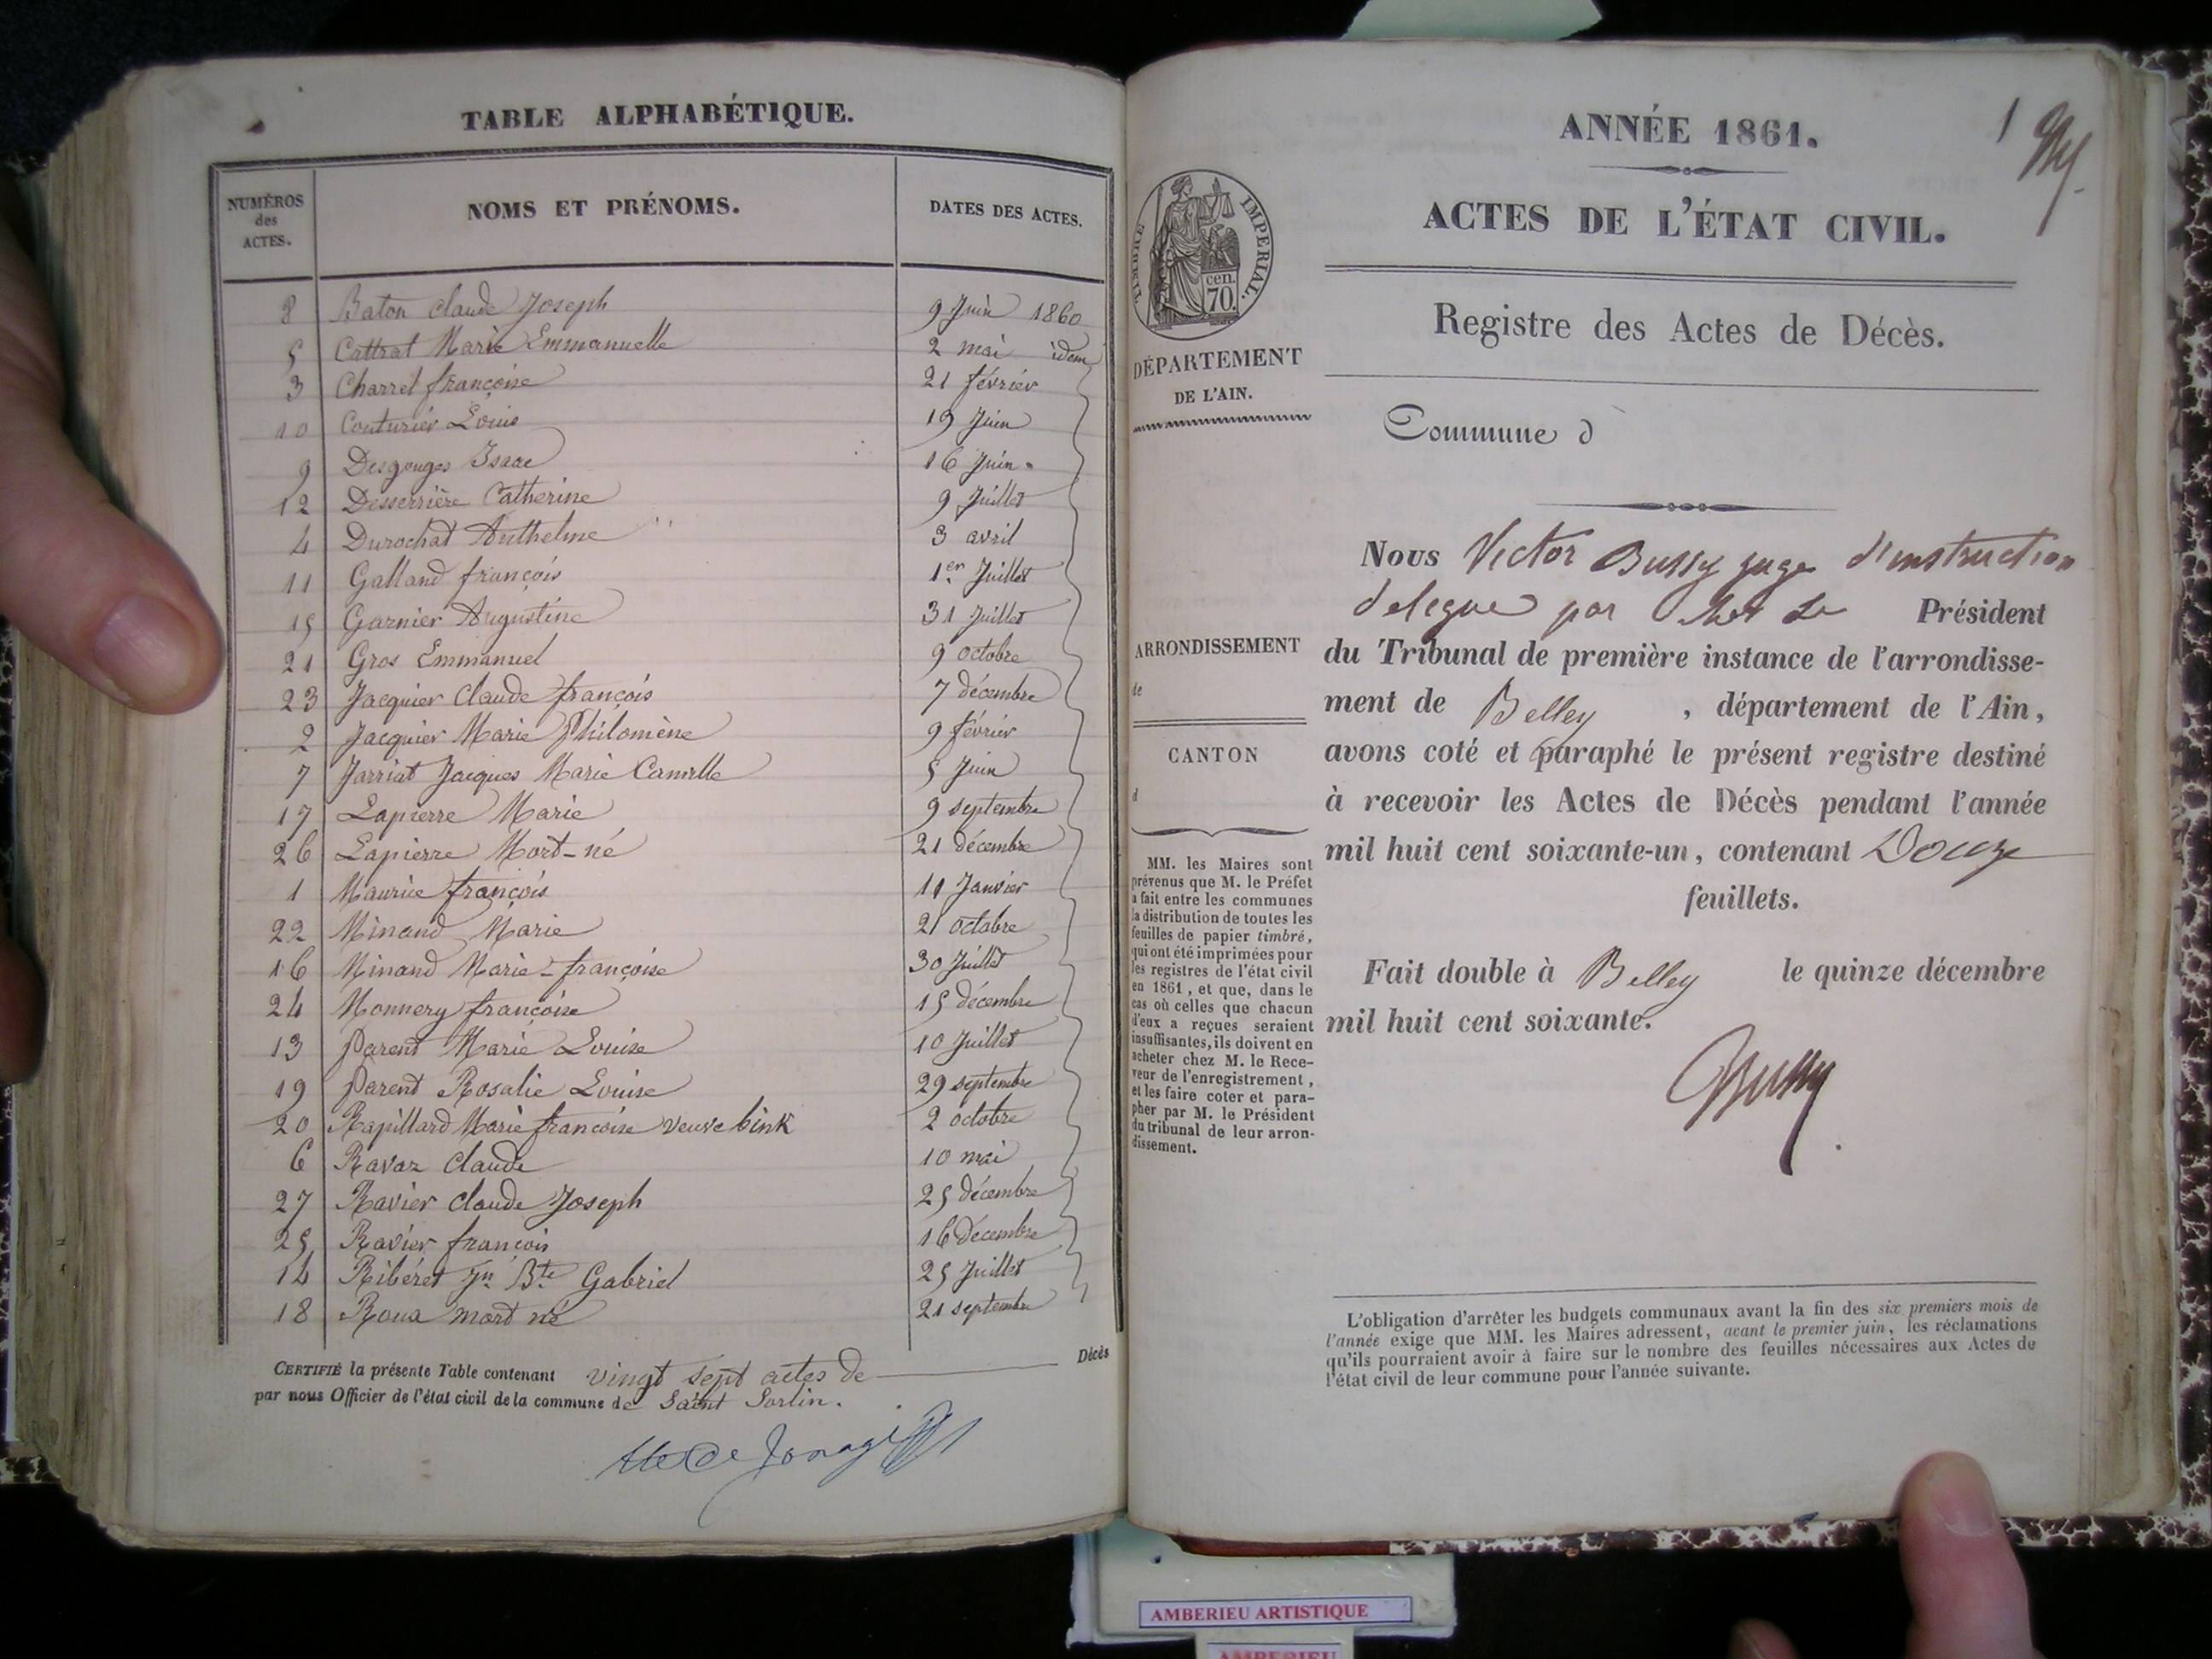 TABLE ALPHABÉTIQUE.
NUMÉROS des ACTES. NOMS ET PRÉNOMS. DATES DES ACTES.
8 Baton Claude Joseph 9 Juin 1860
5 Cattrat Marie Emmanuelle 2 mai idem
3 Charrel françoise 21 février
10 Couturier Louis 19 Juin
9 Desgouges Isaac 16 Juin
12 Desserrière Catherine 9 Juillet
4 Durochat Anthelme 3 avril
11 Galland françois 1er Juillet
15 Garnier Augustine 31 Juillet
21 Gros Emmanuel 9 octobre
23 Jacquier Claude françois 7 décembre
2 Jacquier Marie Philomène 9 février
7 Jarriat Jacques Marie Camille 5 Juin
17 Lapierre Marie 9 septembre
26 Lapierre Mort-né 21 décembre
1 Maurice françois 11 Janvier
22 Minand Marie 21 octobre
16 Minand Marie-françoise 30 Juillet
24 Monnery françoise 15 décembre
13 Parent Marie Louise 10 Juillet
19 Parent Rosalie Louise 29 septembre
20 Rapillard Marie françoise veuve bink 2 octobre
6 Ravaz Claude 10 mai
27 Ravier Claude Joseph 25 décembre
25 Ravier françois 16 décembre
14 Ribéret Jn Bte Gabriel 25 Juillet
18 Roux mort né 21 septembre
CERTIFIÉ la présente Table contenant vingt sept actes de Décès
par nous Officier de l'état civil de la commune de Saint Sorlin.
1
ANNÉE 1861.
ACTES DE L'ÉTAT CIVIL.
Registre des Actes de Décès.
TIMBRE IMPÉRIAL.
cen.
70.
DÉPARTEMENT
DE L'AIN.
ARRONDISSEMENT
de
CANTON
d
MM. les Maires sont
prévenus que M. le Préfet
a fait entre les communes
la distribution de toutes les
feuilles de papier timbré,
qui ont été imprimées pour
les registres de l'état civil
en 1861, et que, dans le
cas où celles que chacun
d'eux a reçues seraient
insuffisantes, ils doivent en
acheter chez M. le Rece-
veur de l'enregistrement,
et les faire coter et para-
pher par M. le Président
du tribunal de leur arron-
dissement.
Commune d
Nous Victor Bussy juge d'instruction
delegue par Président
du Tribunal de première instance de l'arrondisse-
ment de Belley, département de l'Ain,
avons coté et paraphé le présent registre destiné
à recevoir les Actes de Décès pendant l'année
mil huit cent soixante-un, contenant Douze
feuillets.
Fait double à Belley le quinze décembre
mil huit cent soixante.
Bussy
L'obligation d'arrêter les budgets communaux avant la fin des six premiers mois de
l'année exige que MM. les Maires adressent, avant le premier juin, les réclamations
qu'ils pourraient avoir à faire sur le nombre des feuilles nécessaires aux Actes de
l'état civil de leur commune pour l'année suivante.
AMBERIEU ARTISTIQUE
AMBERIEU